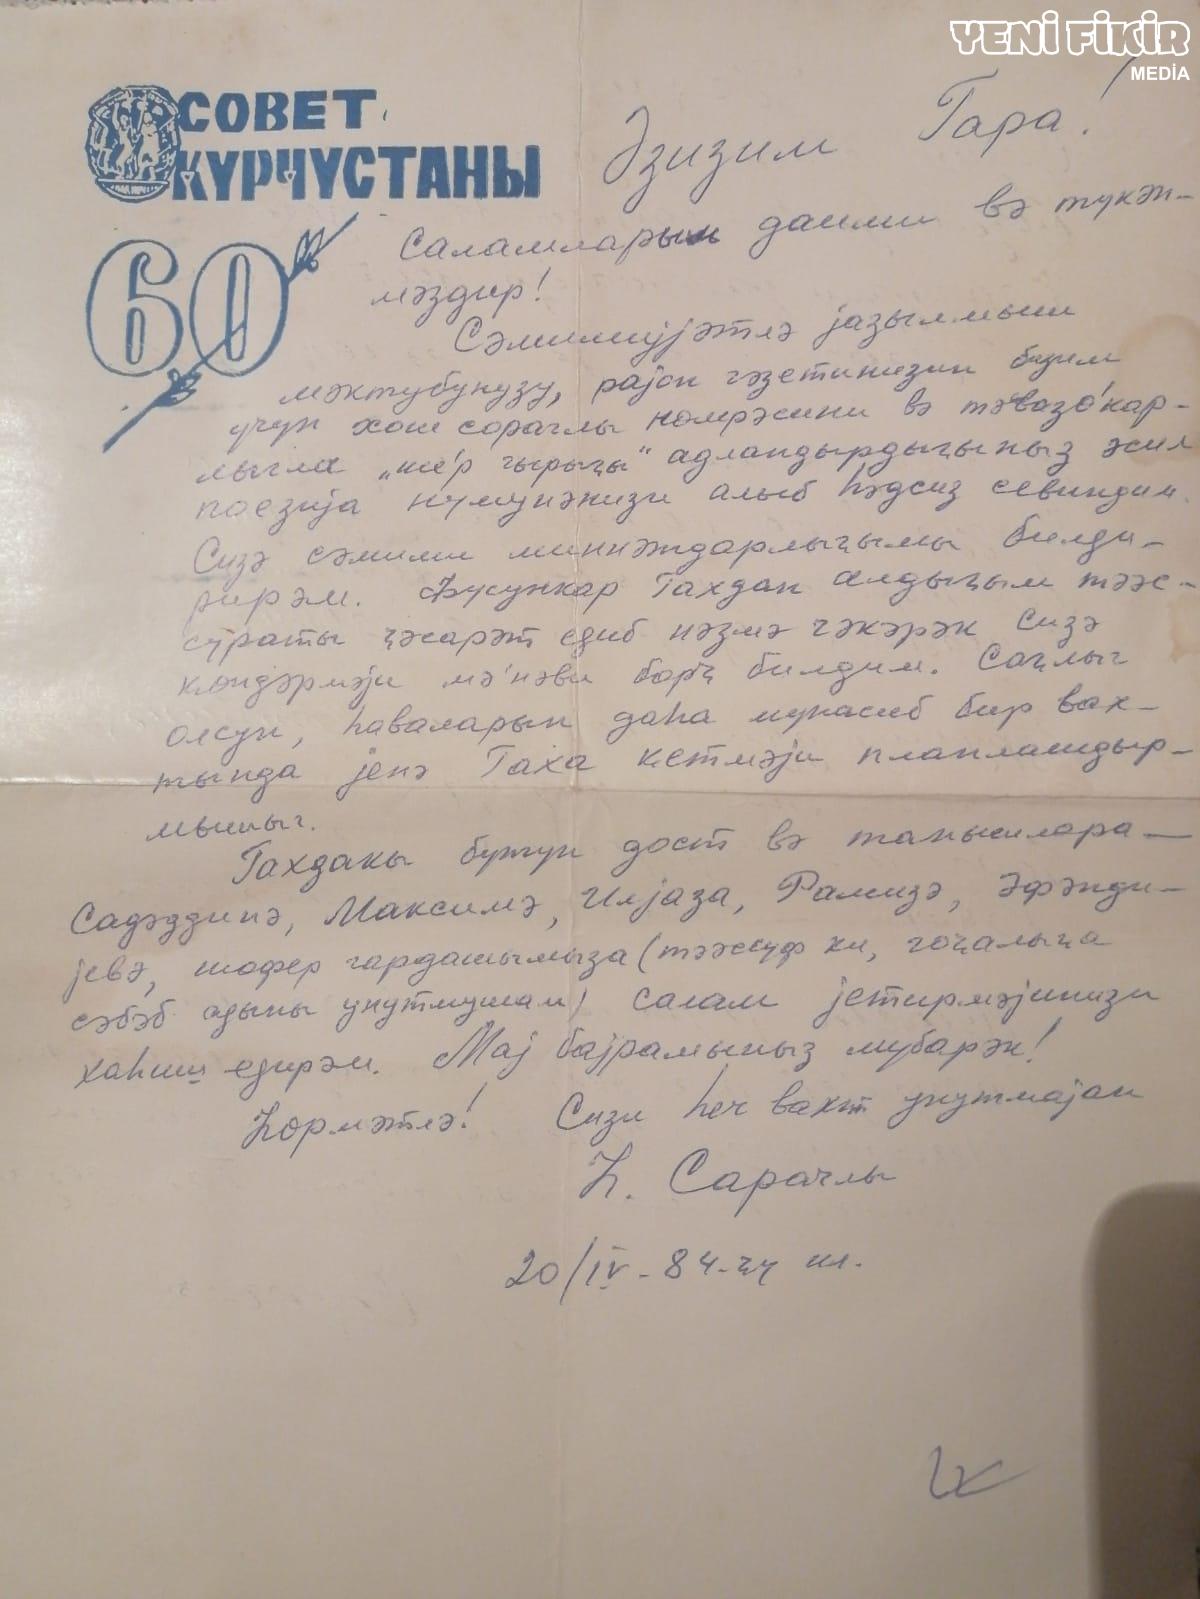 YENİ FİKİR
MEDİA
СОВЕТ
ҜҮРҸҮСТАНЫ
60
Әзизим Гара!
Саламларын даими вә түкән-
мәздир!
Сәмимијјәтлә јазылмыш
мәктубунузу, рајон гәзетинизин бизим
үчүн хош сораглы нөмрәсини вә тәвазө'кар-
лыгла „ше'р гырығы“ адландырдығыныз әсил
поезија нүмунәнизи алыб һәдсиз севиндим.
Сизә сәмими миннәтдарлығымы билди-
рирәм. Фүсункар Гахдан алдығым тәәс-
сүраты ҹәсарәт едиб нәзмә чәкәрәк Сизә
ҝөндәрмәји мә'нәви борҹ билдим. Сағлыг
олсун, һаваларын даһа мүнасиб бир вах-
тында јенә Гаха ҝетмәји планлашдыр-
мышыг.
Гахдакы бүтүн дост вә танышлара—
Садәддинә, Максимә, Илјаза, Рамизә, Әфәнди-
јевә, шофер гардашымыза (тәәссүф ки, гоҹалыға
сәбәб адыны унутмушам) салам јетирмәјинизи
хаһиш едирәм. Мај бајрамыныз мүбарәк!
Һөрмәтлә! Сизи һеч вахт унутмајан
Һ. Сарачлы
20/IV-84-ҹү ил.